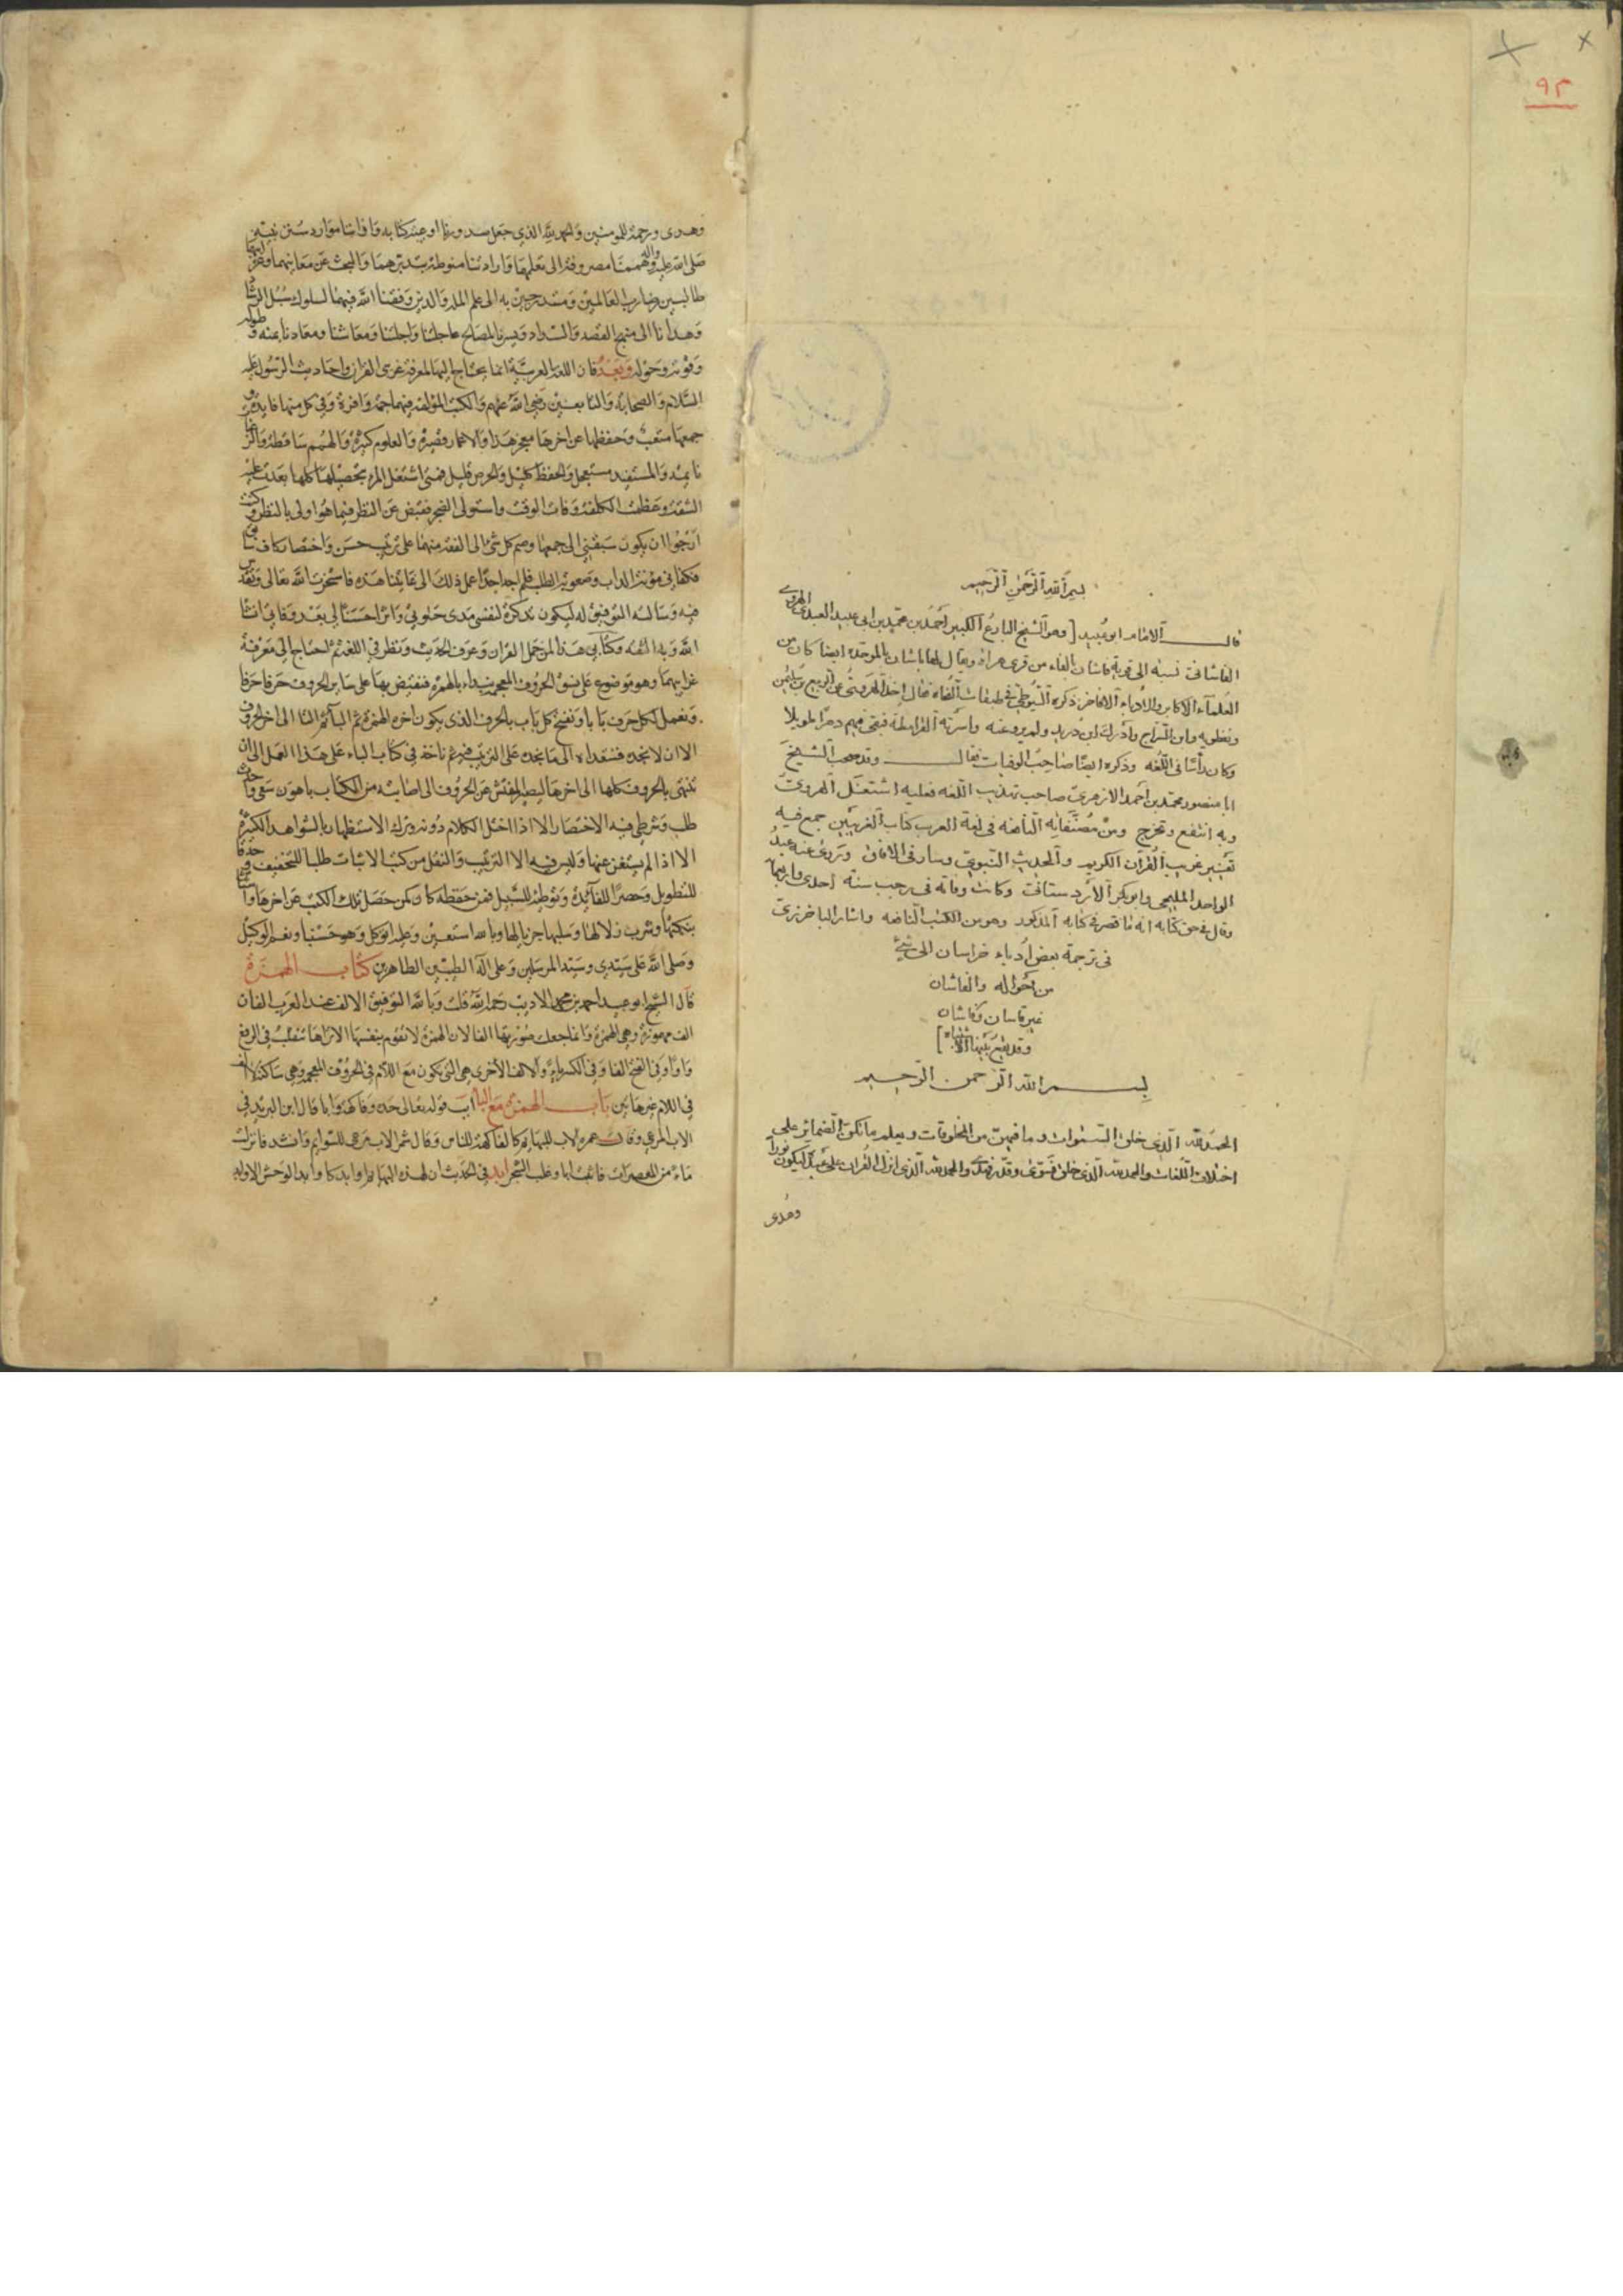 ٩٣
بسم الله الرحمن الرحيم
قال الامام ابو عبيد [ وهو الشيخ البارع الكبير احمد بن محمد بن ابي عبيد العبدى الهروى
الفاشانى نسبة الى قرية فاشان بالفاء من قرى هراة ويقال لها باشان بالموحدة ايضا كان من
العلمآء الاكابر والادباء الافاخر ذكره السيوطى فى طبقات النحاة فقال اخذ الهروى عن الربيع بن سليمن
ونفطويه وابن السراج وادرك ابن دريد ولم يرو عنه واسرته القرامطة فبقى فيهم دهرا طويلا
وكان رأسا فى اللغه وذكره ايضا صاحب الوفيات فقال وقد صحب الشيخ
ابا منصور محمد بن احمد الازهرى صاحب تهذيب اللغه فعليه اشتغل الهروى
وبه انتفع وتخرج ومن مصنفاته النافعه فى لغة العرب كتاب الغريبين جمع فيه
تفسير غريب القرآن الكريم والحديث النبوى وسار فى الافاق وتروى عنه عبد
الواحد المليحى وابو بكر الاردستانى وكانت وفاته فى رجب سنة احدى واربعمائة
وقال فى حق كتابه انه ما قصر فى كتابه المذكور وهو من الكتب النافعه واشار الباخرزى
فى ترجمة بعض ادباء خراسان الى شئ
من احواله والفاشان
غير قاسان وكاشان
وقد يقع بينها الاشتباه ]
بسم الله الرحمن الرحيم
الحمد لله الذى خلق السموات وما فيهن من المخلوقات ويعلم ما تكن الضمائر على
اختلاف اللغات والحمد لله الذى خلق فسوى وقدر فهدى والحمد لله الذى انزل القران على عبده ليكون نورا
وهدى
وهدى ورحمة للمومنين والحمد لله الذي جعل صدورنا اوعية كتابه وافواهنا موارد سنن نبيه
صلى الله عليه واله وهممنا مصروفة الى تعلمها وارادتنا منوطة بتدبرهما والبحث عن معانيهما وغرائبهما
طالبين رضا رب العالمين ومتدرجين به الى علم الملة والدين وفقنا الله فيهما لسلوك سبل الرشاد
وهدانا الى منهج القصد والسداد ويسرنا لمصالح عاجلنا واجلنا ومعاشنا ومعادنا بمنه وطوله
وقوته وحوله وبعد فان اللغة العربية انما يحتاج اليها لمعرفة غريبي القران واحاديث الرسول عليه
السلام والصحابة والتابعين رضي الله عنهم والكتب المؤلفة فيهما جمة وافرة وفي كل منها فايدة و
جمعها متعب وحفظها عن اخرها معجز هذا والاعمار قصيرة والعلوم كثيرة والهمم ساقطة والرغبات
نايمة والمستفيد مستعجل والحفظ كليل والحرص قليل فمتى اشتغل المرء بتحصيلها كلها بعدت عليه
الشقة وعظمت الكلفة وفات الوقت واستولى الضجر فقبض عن النظر فيما هو اولى بالنظر وكنت
ارجوا ان يكون سبقني الى جمعها وضم كل شئ الى لفقه منهما على ترتيب حسن واختصار كاف سابق
فكفاني مؤنة الداب وصعوبة الطلب فلم اجد احدا عمل ذلك الى غايتنا هذه فاستخرت الله تعالى وتقدس
فيه وسالته التوفيق له ليكون تذكرة لنفسي مدى حياتي واثرا حسنا لي بعد وفاتي ان شا
الله وبه الثقة وكتابي هذا لمن حمل القران وعرف الحديث ونظر في اللغة ثم احتاج الى معرفة
غرايبهما وهو موضوع على نسق الحروف المعجمة نبداء بالهمزة فنفيض بها على ساير الحروف حرفا حرفا
ونعمل لكل حرف بابا ونفتح كل باب بالحرف الذي يكون اخره الهمزة ثم الباء ثم التا الى اخر الحروف
الا ان لا نجده فنتعداه الى ما نجده على الترتيب فيه ثم ناخذ في كتاب الباء على هذا العمل الى ان
ننتهى بالحروف كلها الى اخرها ليصير المفتش عن الحروف الى اصابته من الكتاب باهون سعى واحث
طلب وشرطي فيه الاختصار الا اذا اختل الكلام دونه وترك الاستظهار بالشواهد الكثيرة
الا اذا لم يستغن عنها وليس فيه الا الترتيب والنقل من كتب الاثبات طلبا للتخفيف وحذفا
للتطويل وحصرا للفائدة وتوطية للسبيل فمن حفظه كان كمن حصل تلك الكتب عن اخرها واستأثر
بنكتها وشرب زلالها وسلبها جريالها وبالله استعين وعليه اتوكل وهو حسبنا ونعم الوكيل
وصلى الله على سيدي وسيد المرسلين وعلى آله الطيبين الطاهرين كتاب الهمزة
قال الشيخ ابو عبيد احمد بن محمد الاديب رحمه الله قلت وبالله التوفيق الالف عند العرب الفان
الف مهموزة وهي الهمزة وانما جعلت صورتها الفا لان الهمزة لا تقوم بنفسها الا تراها تنقلب في الرفع
واوا وفي الفتح الفا وفي الكسر ياء والالف الاخرى هي التي يكون مع اللام في الحروف المعجم وهي ساكنة لا الف
في الكلام غيرها تين باب الهمزة مع البا اب قوله تعالى حده وفاكهة وابا قال ابن اليزيدي
الاب المرعى وقال عمره الاب للبهايم كالفاكهة للناس وقال شمر الاب مرعى للسوايم وانشد فانزلت
ماء من المعصرات فانبت ابا وغلب الشجر ابد في الحديث ان لهذه البهايم اوابد كاوابد الوحش الاوابد